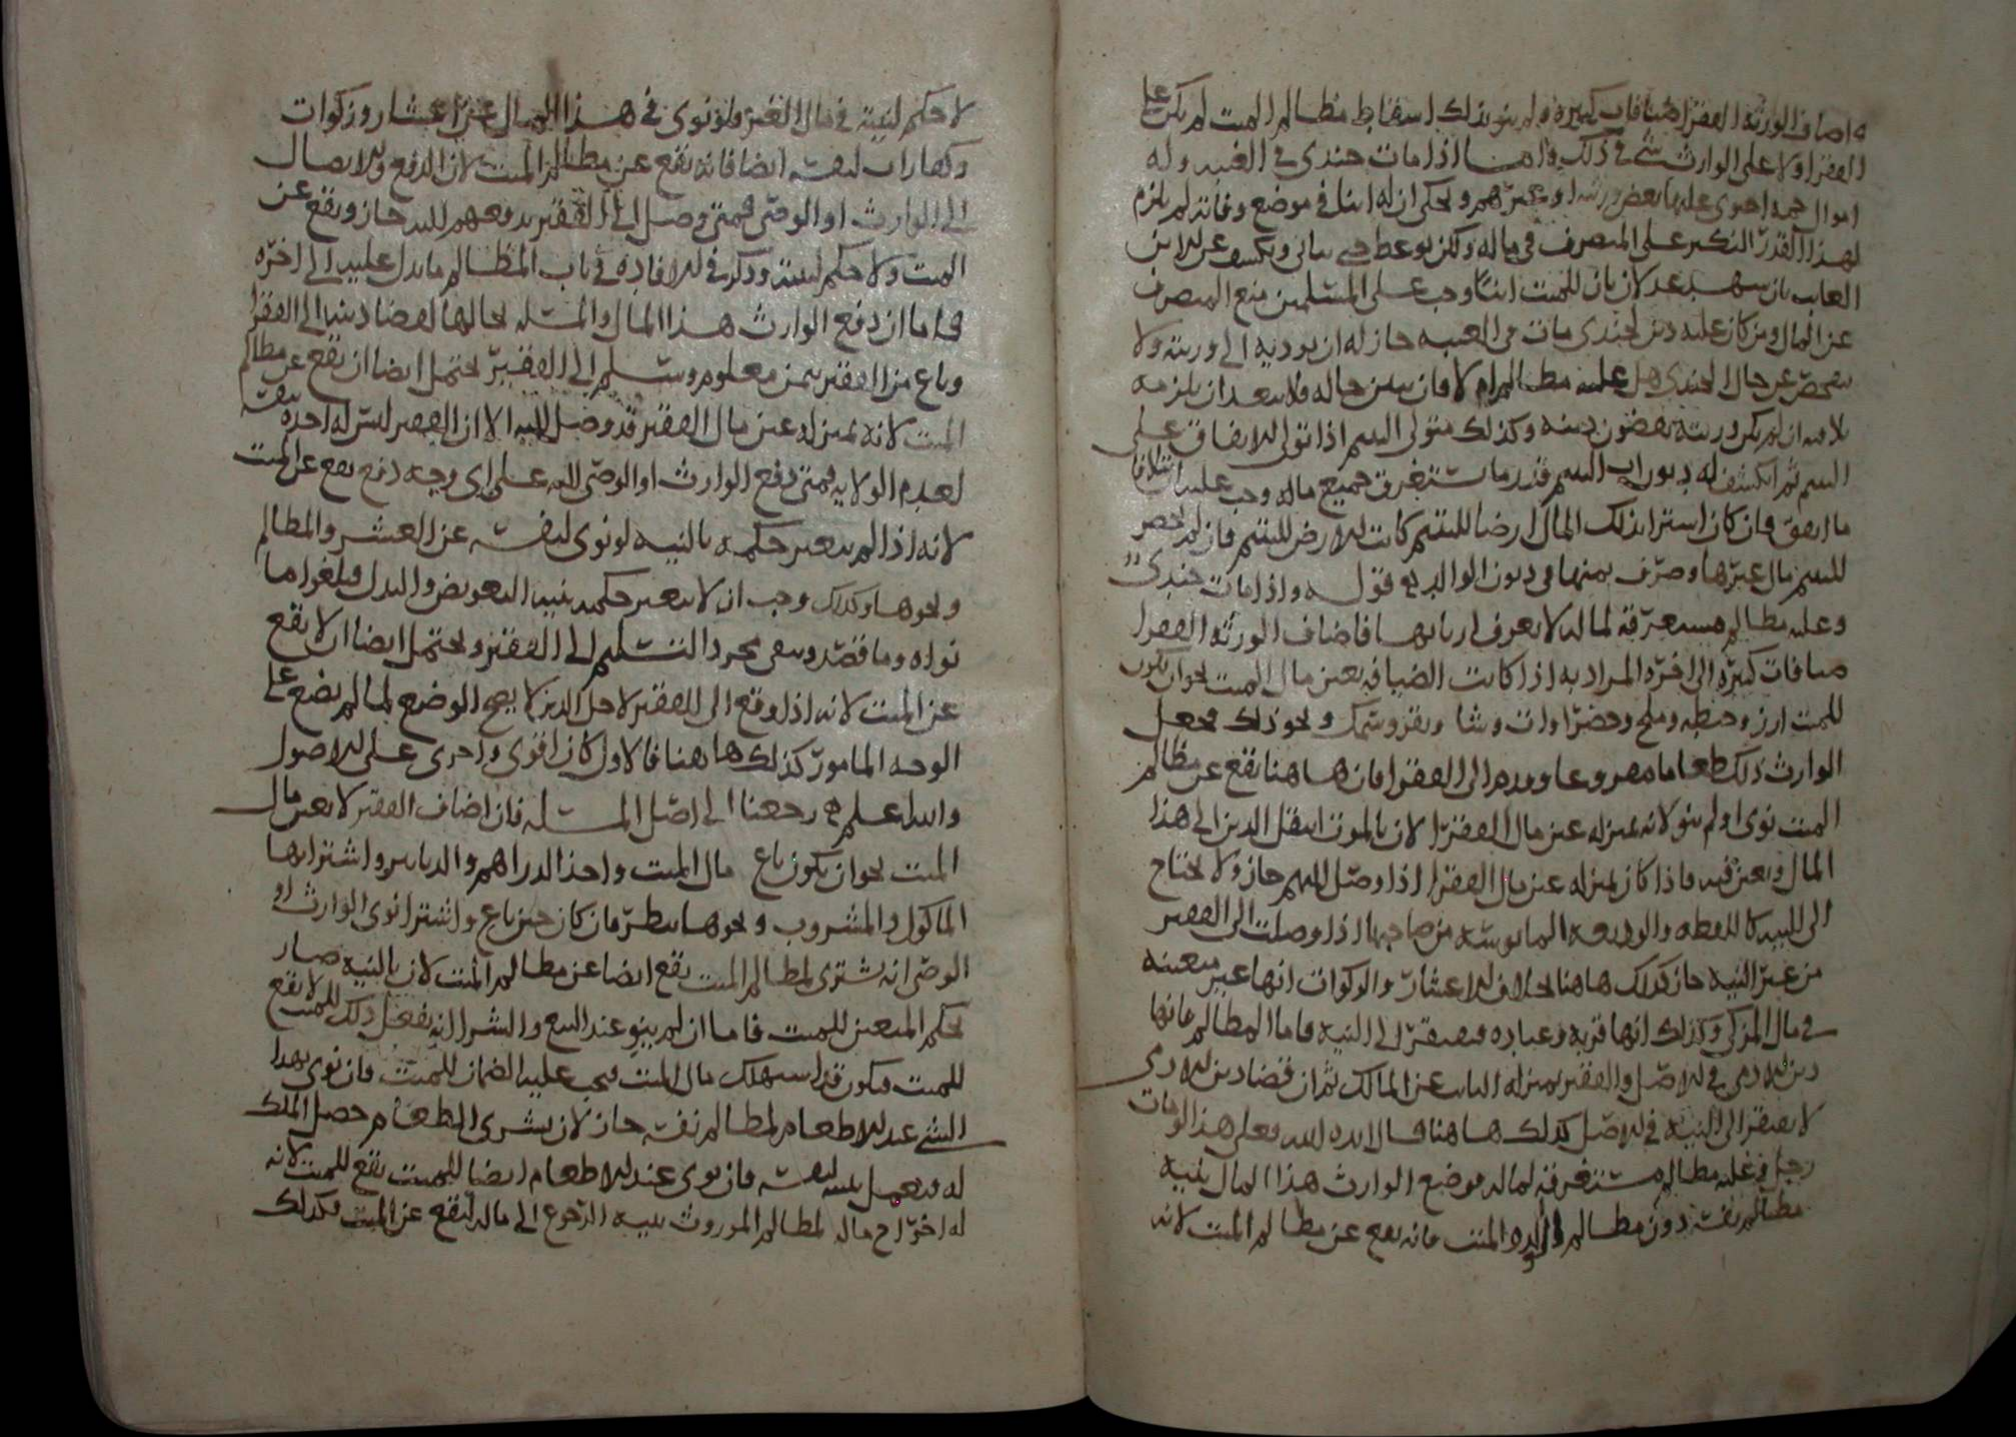 ه اضاف الورثة الفقرا ضيافات كبيرة ولم ينو بذلك اسقاط مظالم الميت لم يكن على
الفقرا ولا على الوارث شي في ذلك واما اذا مات جندي في الغيبه وله
اموال جمه احتوى عليها بعض ورثته او غيرهم ويحكى ان له ابنا في موضع وفاته لم يلزم
بهذا القدر النكير على المتصرف في ماله ولكن يوعظ حتى يتانى ويكشف عن الابن
الغايب بان شهد عدلان بان للميت ابنا وجب على المسلمين منع المتصرف
عن المال ومن كان عليه دين لجندي مات في الغيبه جاز له ان يوديه الى ورثته ولا
يتفحص عن حال الجندي هل عليه مظالم ام لا فان تبين حاله فلا يبعد ان يلزمه
ان لم يكن ورثته يقضون دينه وكذلك متولى اليتيم اذا تولى الانفاق على
اليتيم ثم انكشف له ديون اب اليتيم قدر ما يستغرق جميع ماله وجب عليه
ما انفق فان كان اشترا بذلك المال ارضا لليتيم كانت الارض لليتيم فان لم يحضر
لليتيم مال غيرها وصرف بمنها في ديون الوالد قوله واذا مات جندي
وعليه مظالم مستغرقه لماله لا يعرف اربابها فاضاف الورثه الفقرا
ضيافات كثيره الى اخره المراد به اذا كانت الضيافه بعين مال الميت نحو ان يكون
للميت ارز وحنطه وملح وخضراوات وشا وبقر وسمك ونحو ذلك فجعل
الوارث ذلك طعاما مصروعا وقدم الى الفقرا فان هاهنا يقع عن مظالم
الميت نوى او لم ينو لانه بمنزله عين مال الفقرا لان بالموت انتقل الدين الى هذا
المال وتعين فيه فاذا كان بمنزله عين مال الفقرا اذا وصل اليهم جاز ولا يحتاج
الى النيه كاللقطه والوديعه المايوسه من صاحبها اذا وصلت الى الفقير
من غير النيه جاز كذلك هاهنا بخلاف الاعشار والزكوات انها غير متعينه
في مال المزكي وكذلك انها قربه وعباده فيفتقر الى النيه فاما المظالم فانها
دين لادمي في الاصل والفقير بمنزله النايب عن المالك ثم ان قضا دين الادمي
لا يفتقر الى النيه في الاصل كذلك هاهنا قال ايده الله فعلى هذا لو مات
رجل عليه مظالم مستغرقه لماله فوضع الوارث هذا المال بنيه
مظالم نفسه دون مظالم والده الميت فانه يقع عن مظالم الميت لانه
لا حكم لنيته في مال الغير ولو نوى في هذا المال عن اعشار وزكوات
وكفارات لنفسه ايضا فانه يقع عن مظالم الميت لان الدفع والايصال
الى الوارث او الوصي فمتى وصل الى الفقير بدفعهم اليه جاز ويقع عن
الميت ولا حكم لنيته وذكر في الافاده في باب المظالم ما يدل عليه الى اخره
فاما ان دفع الوارث هذا المال والمسله بحالها لقضا دينه الى الفقرا
وباع من الفقير بثمن معلوم وسلم الى الفقير يحتمل ايضا ان يقع عن مظالم
الميت لانه بمنزله عين مال الفقير قد وصل اليه الا ان الفقير ليس له اخذه بنفسه
لعدم الولايه فمتى دفع الوارث او الوصي اليه على اي وجه دفع يقع عن الميت
لانه اذا لم يتغير حكمه بالنيه لو نوى لنفسه عن العشر والمظالم
ونحوها وكذلك وجب ان لا يتغير حكمه بنيه التعويض والبدل فيلغوا ما
نواه وما قصد ويبقى مجرد التسليم الى الفقير ويحتمل ايضا ان لا يقع
عن الميت لانه اذا دفع الى الفقير لاجل الدين لا يصح الوضع لما لم يضع على
الوجه المامور كذلك هاهنا فالاول كان اقوى واحرى على الاصول
والله اعلم رجعنا الى اصل المسله فان اضاف الفقير لا بعين مال
الميت نحو ان يكون باع مال الميت واخذ الدراهم والدنانير واشترا بها
الماكول والمشروب ونحوها ينظر فان كان حين باع واشترا نوى الوارث او
الوصي انه يشترى لمظالم الميت يقع ايضا عن مظالم الميت لان بالنيه صار
بحكم المتعين للميت فاما ان لم ينو عند البيع والشرا انه يفعل ذلك للميت لا يقع
للميت فيكون قد استهلك مال الميت فيجب عليه الضمان للميت فان نوى بهذا
الشي عند الاطعام لمظالم نفسه جاز لان بشرى الطعام حصل الملك
له فيعمل بنيته لنفسه فان نوى عند الاطعام ايضا للميت يقع للميت لانه
له اخراج ماله لمظالم الموروث بنيه الرجوع الى ماله ليقع عن الميت فكذلك